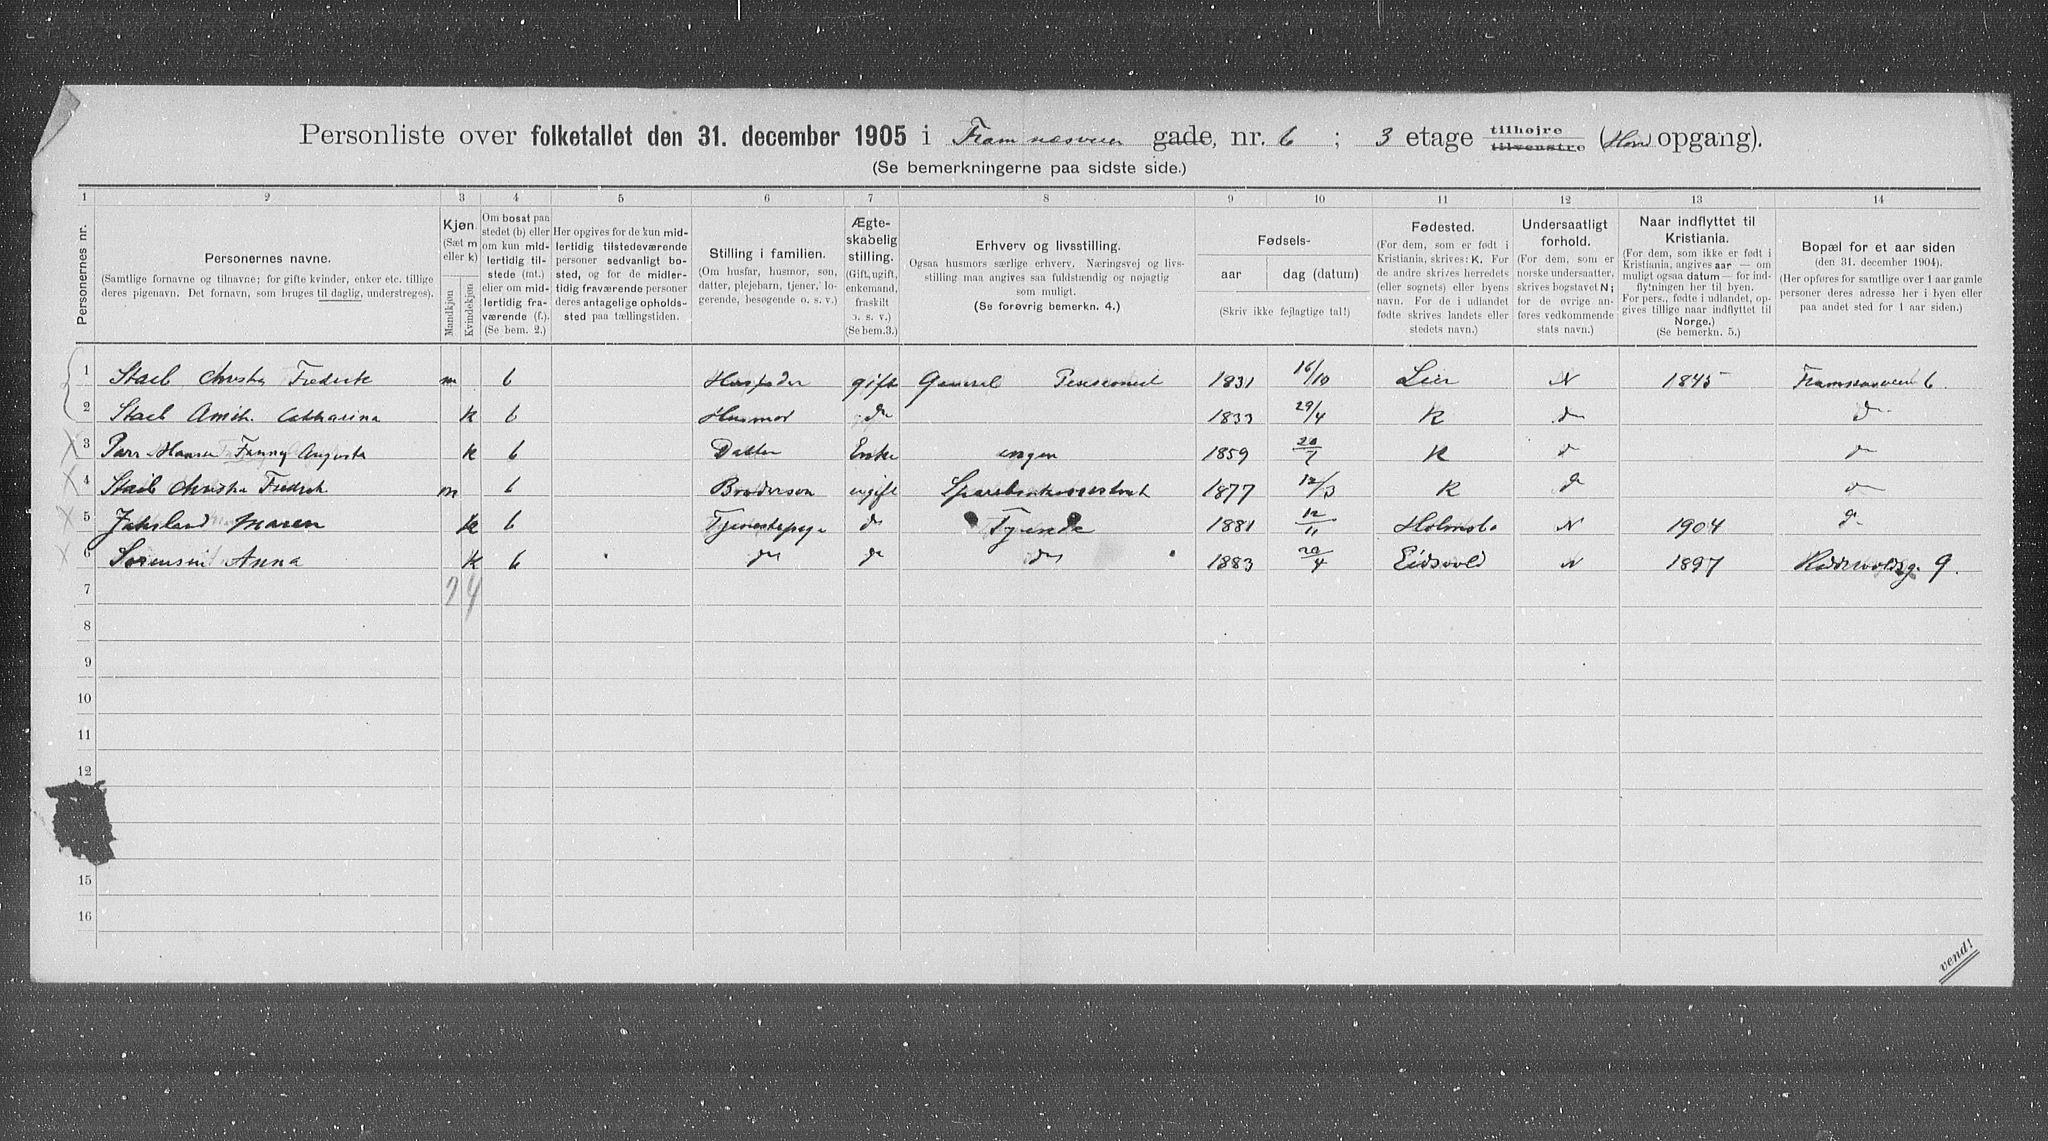 Personliste over folketallet den 31. december 1905 i Framnesveien gade, nr. 6 ; 3 etage tilhøjre tilvenstre (Hovd opgang).
(Se bemerkningerne paa sidste side.)
1 2 3 4 5 6 7 8 9 10 11 12 13 14
Personernes nr.
Personernes navne.
(Samtlige fornavne og tilnavne; for gifte kvinder, enker etc. tillige
deres pigenavn. Det fornavn, som bruges til daglig, understreges).
Kjøn.
(Sæt m
eller k)
Mandkjøn
Kvindekjøn
Om bosat paa
stedet (b) eller
om kun mid-
lertidig tils-
stede (mt.)
eller om mid-
lertidig fra-
værende (f.).
(Se bem. 2.)
Her opgives for de kun mid-
lertidig tilstedeværende
personer sedvanligt bo-
sted, og for de midler-
tidig fraværende personer
deres antagelige opholds-
sted paa tællingstiden.
Stilling i familien.
(Om husfar, husmor, søn,
datter, plejebarn, tjener, lo-
gerende, besøgende o. s. v.)
Ægte-
skabelig
stilling.
(Gift, ugift,
enkemand,
fraskilt
o. s. v.)
(Se bem.3.)
Erhverv og livsstilling.
Ogsaa husmors særlige erhverv. Næringsvej og livs-
stilling maa angives saa fuldstændig og nøjagtig
som muligt.
(Se forøvrig bemerkn. 4.)
Fødsels-
aar dag (datum)
(Skriv ikke fejlagtige tal!)
Fødested.
(For dem, som er født i
Kristiania, skrives: K. For
de andre skrives herredets
(eller sognets) eller byens
navn. For de i udlandet
fødte skrives landets eller
stedets navn.)
Undersaatligt
forhold.
(For dem, som er
norske undersaatter,
skrives bogstavet N;
for de øvrige an-
føres vedkommende
stats navn.)
Naar indflyttet til
Kristiania.
(For dem, som ikke er født i
Kristiania, angives aar — om
muligt ogsaa datum — for ind-
flytningen her til byen.
For pers., fødte i udlandet, op-
gives tillige naar indflyttet til
Norge.)
(Se bemerkn. 5.)
Bopæl for et aar siden
(den 31. december 1904).
(Her opføres for samtlige over 1 aar gamle
personer deres adresse her i byen eller
paa andet sted for 1 aar siden.)
1 Staib Christian Fredrik m b Husfader gift General Pensionist 1831 16/10 Lier N 1845 Framnesveien 6.
2 Staib Catharina k b Husmor do 1833 29/4 K do do
3 Hansen Fanny Augusta k b Datter Enke ingen 1859 20/7 K do do
4 Staib Christian Fredrik m b Brodersøn ugift 1877 12/3 K do do
5 Maren k b Tjenestepige do Tjeneste 1881 12/11 Holmsbo N 1904 do
6 Sørensen Anna k b do do do 1883 20/4 Eidsvold N 1897 Riddervoldsg. 9.
7 24
8
9
10
11
12
15
16
vend!